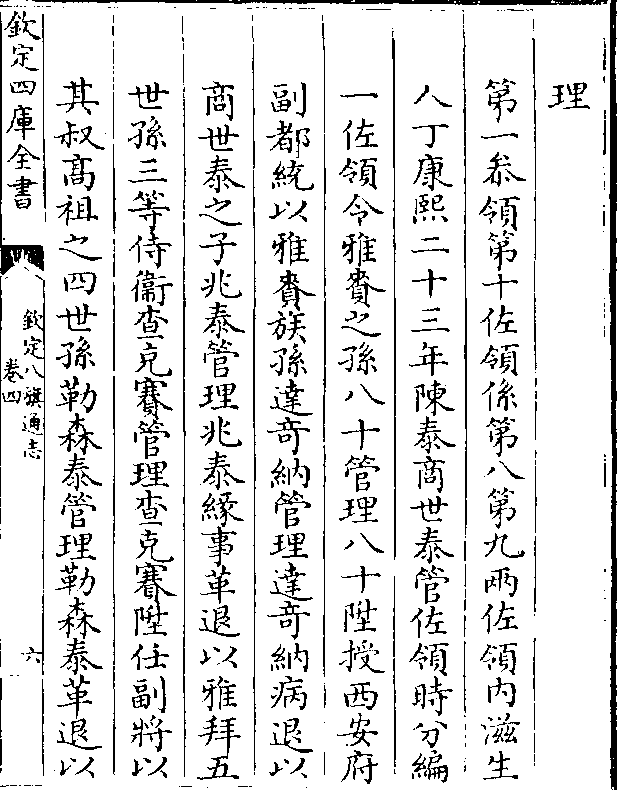 理
第一叅領第十佐領係第八第九兩佐領內滋生
人丁康熙二十三年陳泰商世泰管佐領時分編
一佐領令雅賚之孫八十管理八十陞授西安府
副都統以雅賚族孫達竒納管理達竒納病退以
商世泰之子兆泰管理兆泰緣事革退以雅拜五
世孫三等侍衞查克賽管理查克賽陞任副將以
其叔高祖之四世孫勒森泰管理勒森泰革退以
欽定四庫全書
欽定八旗通志
卷四
六